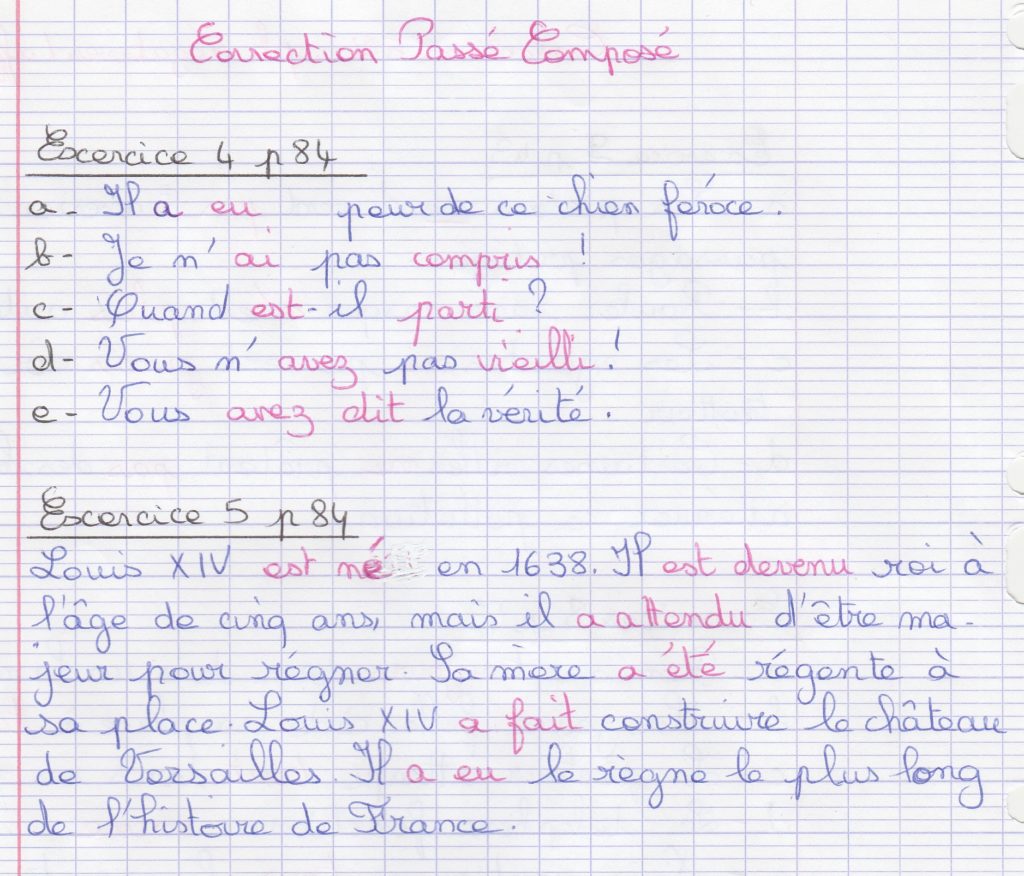 Correction Passé Composé
Excercice 4 p 84
a- Il a eu peur de ce chien féroce.
b- Je n'ai pas compris !
c- Quand est-il parti ?
d- Vous n'avez pas vieilli !
e- Vous avez dit la vérité.
Excercice 5 p 84
Louis XIV est né en 1638. Il est devenu roi à
l'âge de cinq ans, mais il a attendu d'être ma-
jeur pour régner. Sa mère a été régente à
sa place. Louis XIV a fait construire le château
de Versailles. Il a eu le règne le plus long
de l'histoire de France.